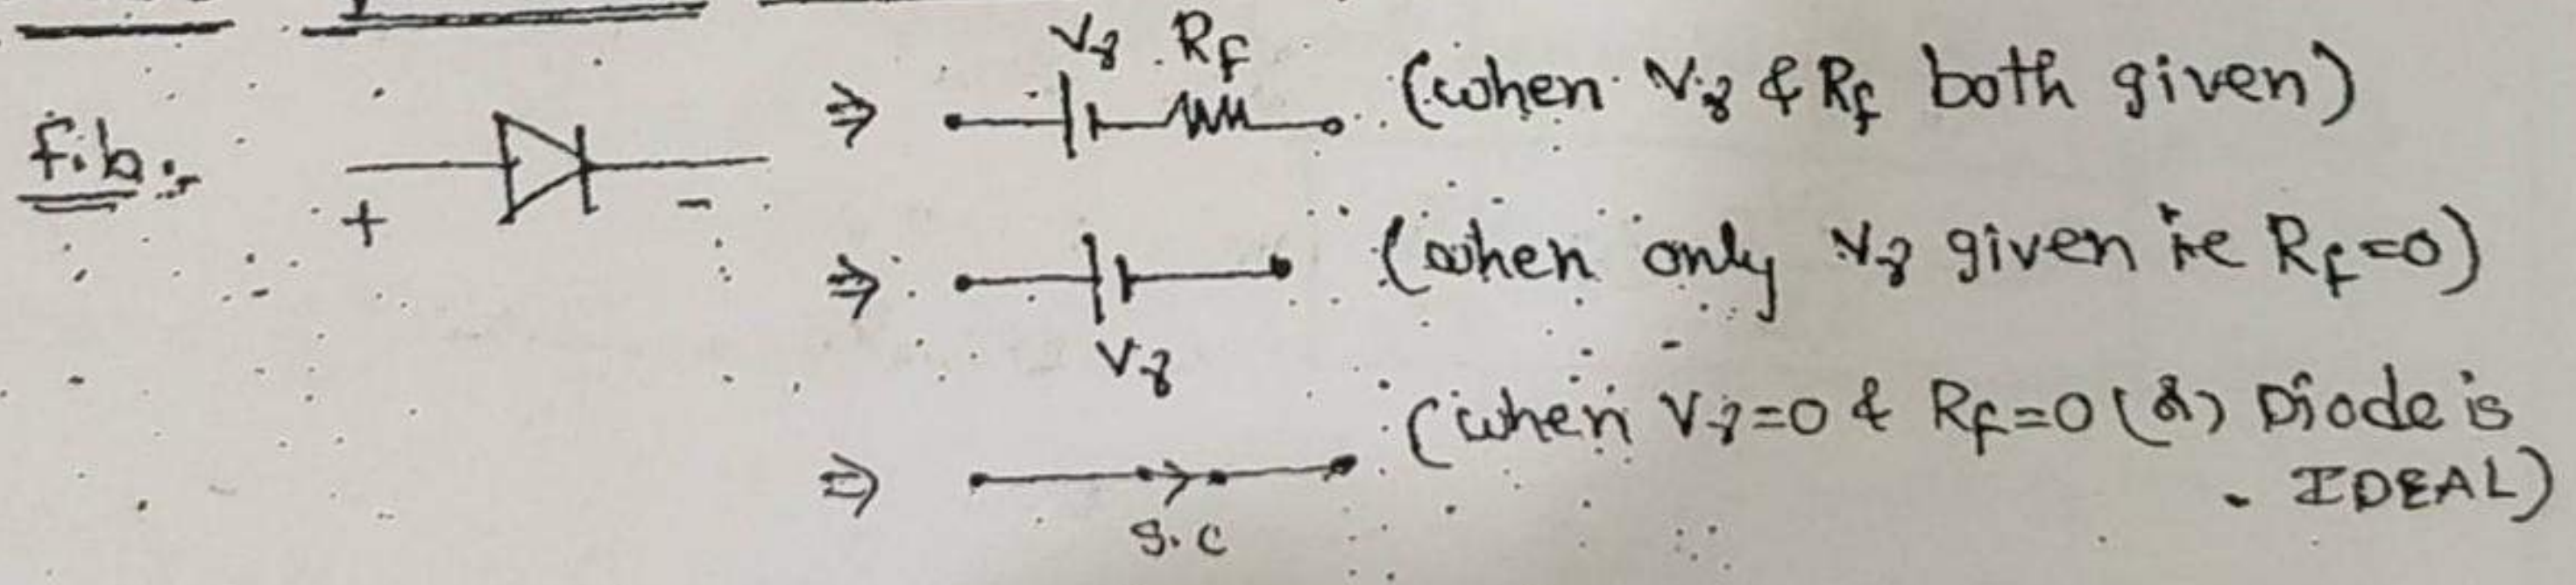 Vγ Rf (when Vγ & Rf both given)
f.b:-
+ -
(when only Vγ given ie Rf=0)
Vγ
(when Vγ=0 & Rf=0 (or) Diode is
IDEAL)
S.C